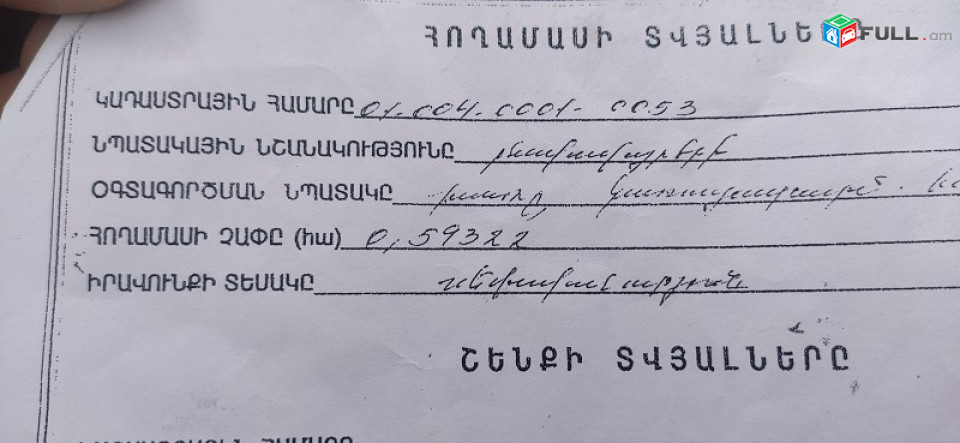 ՀՈՂԱՄԱՍԻ ՏՎՅԱԼՆԵ
FULL.am
ԿԱԴԱՍՏՐԱՅԻՆ ՀԱՄԱՐԸ 01-004-0001-0053
ՆՊԱՏԱԿԱՅԻՆ ՆՇԱՆԱԿՈՒԹՅՈՒՆԸ բնակավայրերի
ՕԳՏԱԳՈՐԾՄԱՆ ՆՊԱՏԱԿԸ խառը կառուցապատման.
ՀՈՂԱՄԱՍԻ ՉԱՓԸ (հա) 0,59322
ԻՐԱՎՈՒՆՔԻ ՏԵՍԱԿԸ սեփականություն
ՇԵՆՔԻ ՏՎՅԱԼՆԵՐԸ